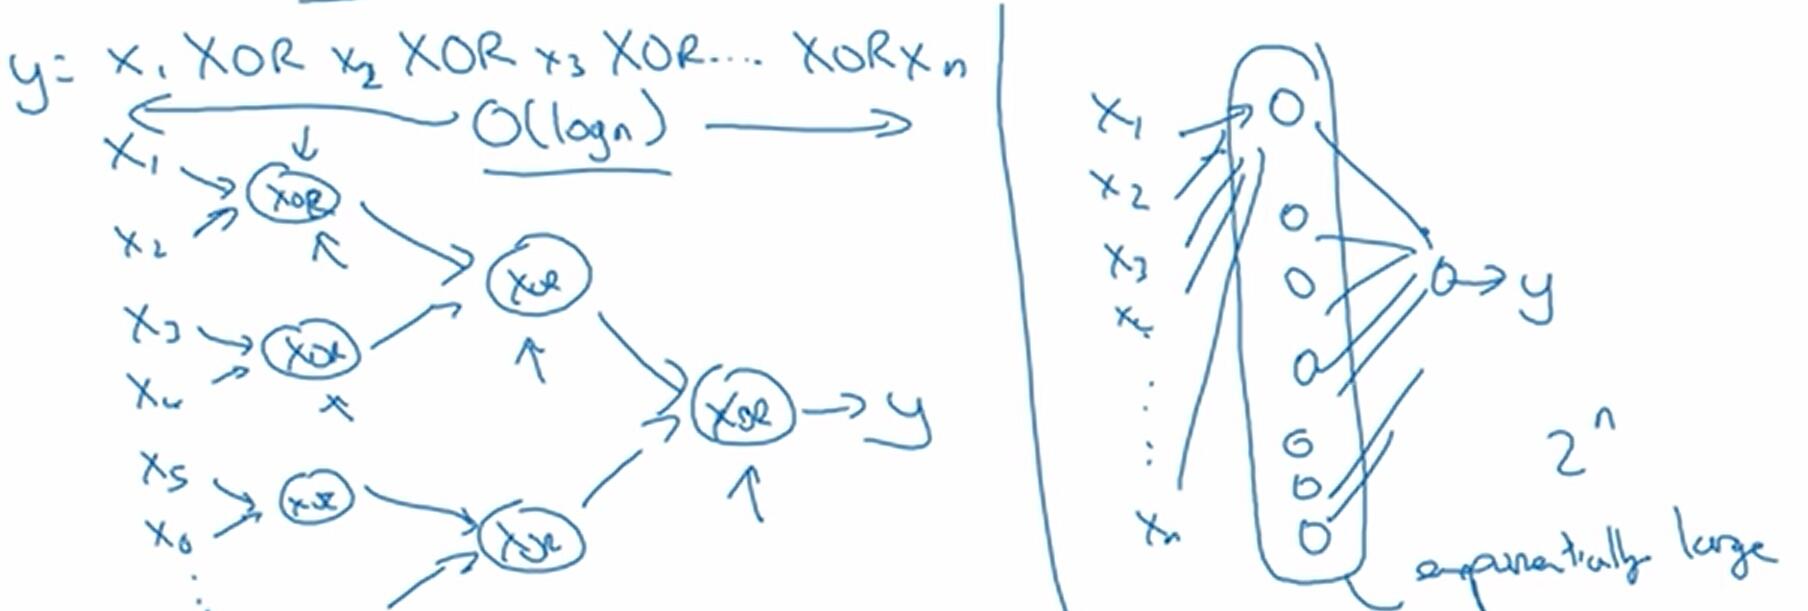 y= x₁ XOR x₂ XOR x₃ XOR.... XOR xₙ
O(log n)
x₁
XOR
x₂
XOR
x₃
XOR
x₄
XOR → y
x₅
XOR
x₆
XOR
x₁
x₂
x₃
x₄
xₙ
→ y
2ⁿ
exponentially large